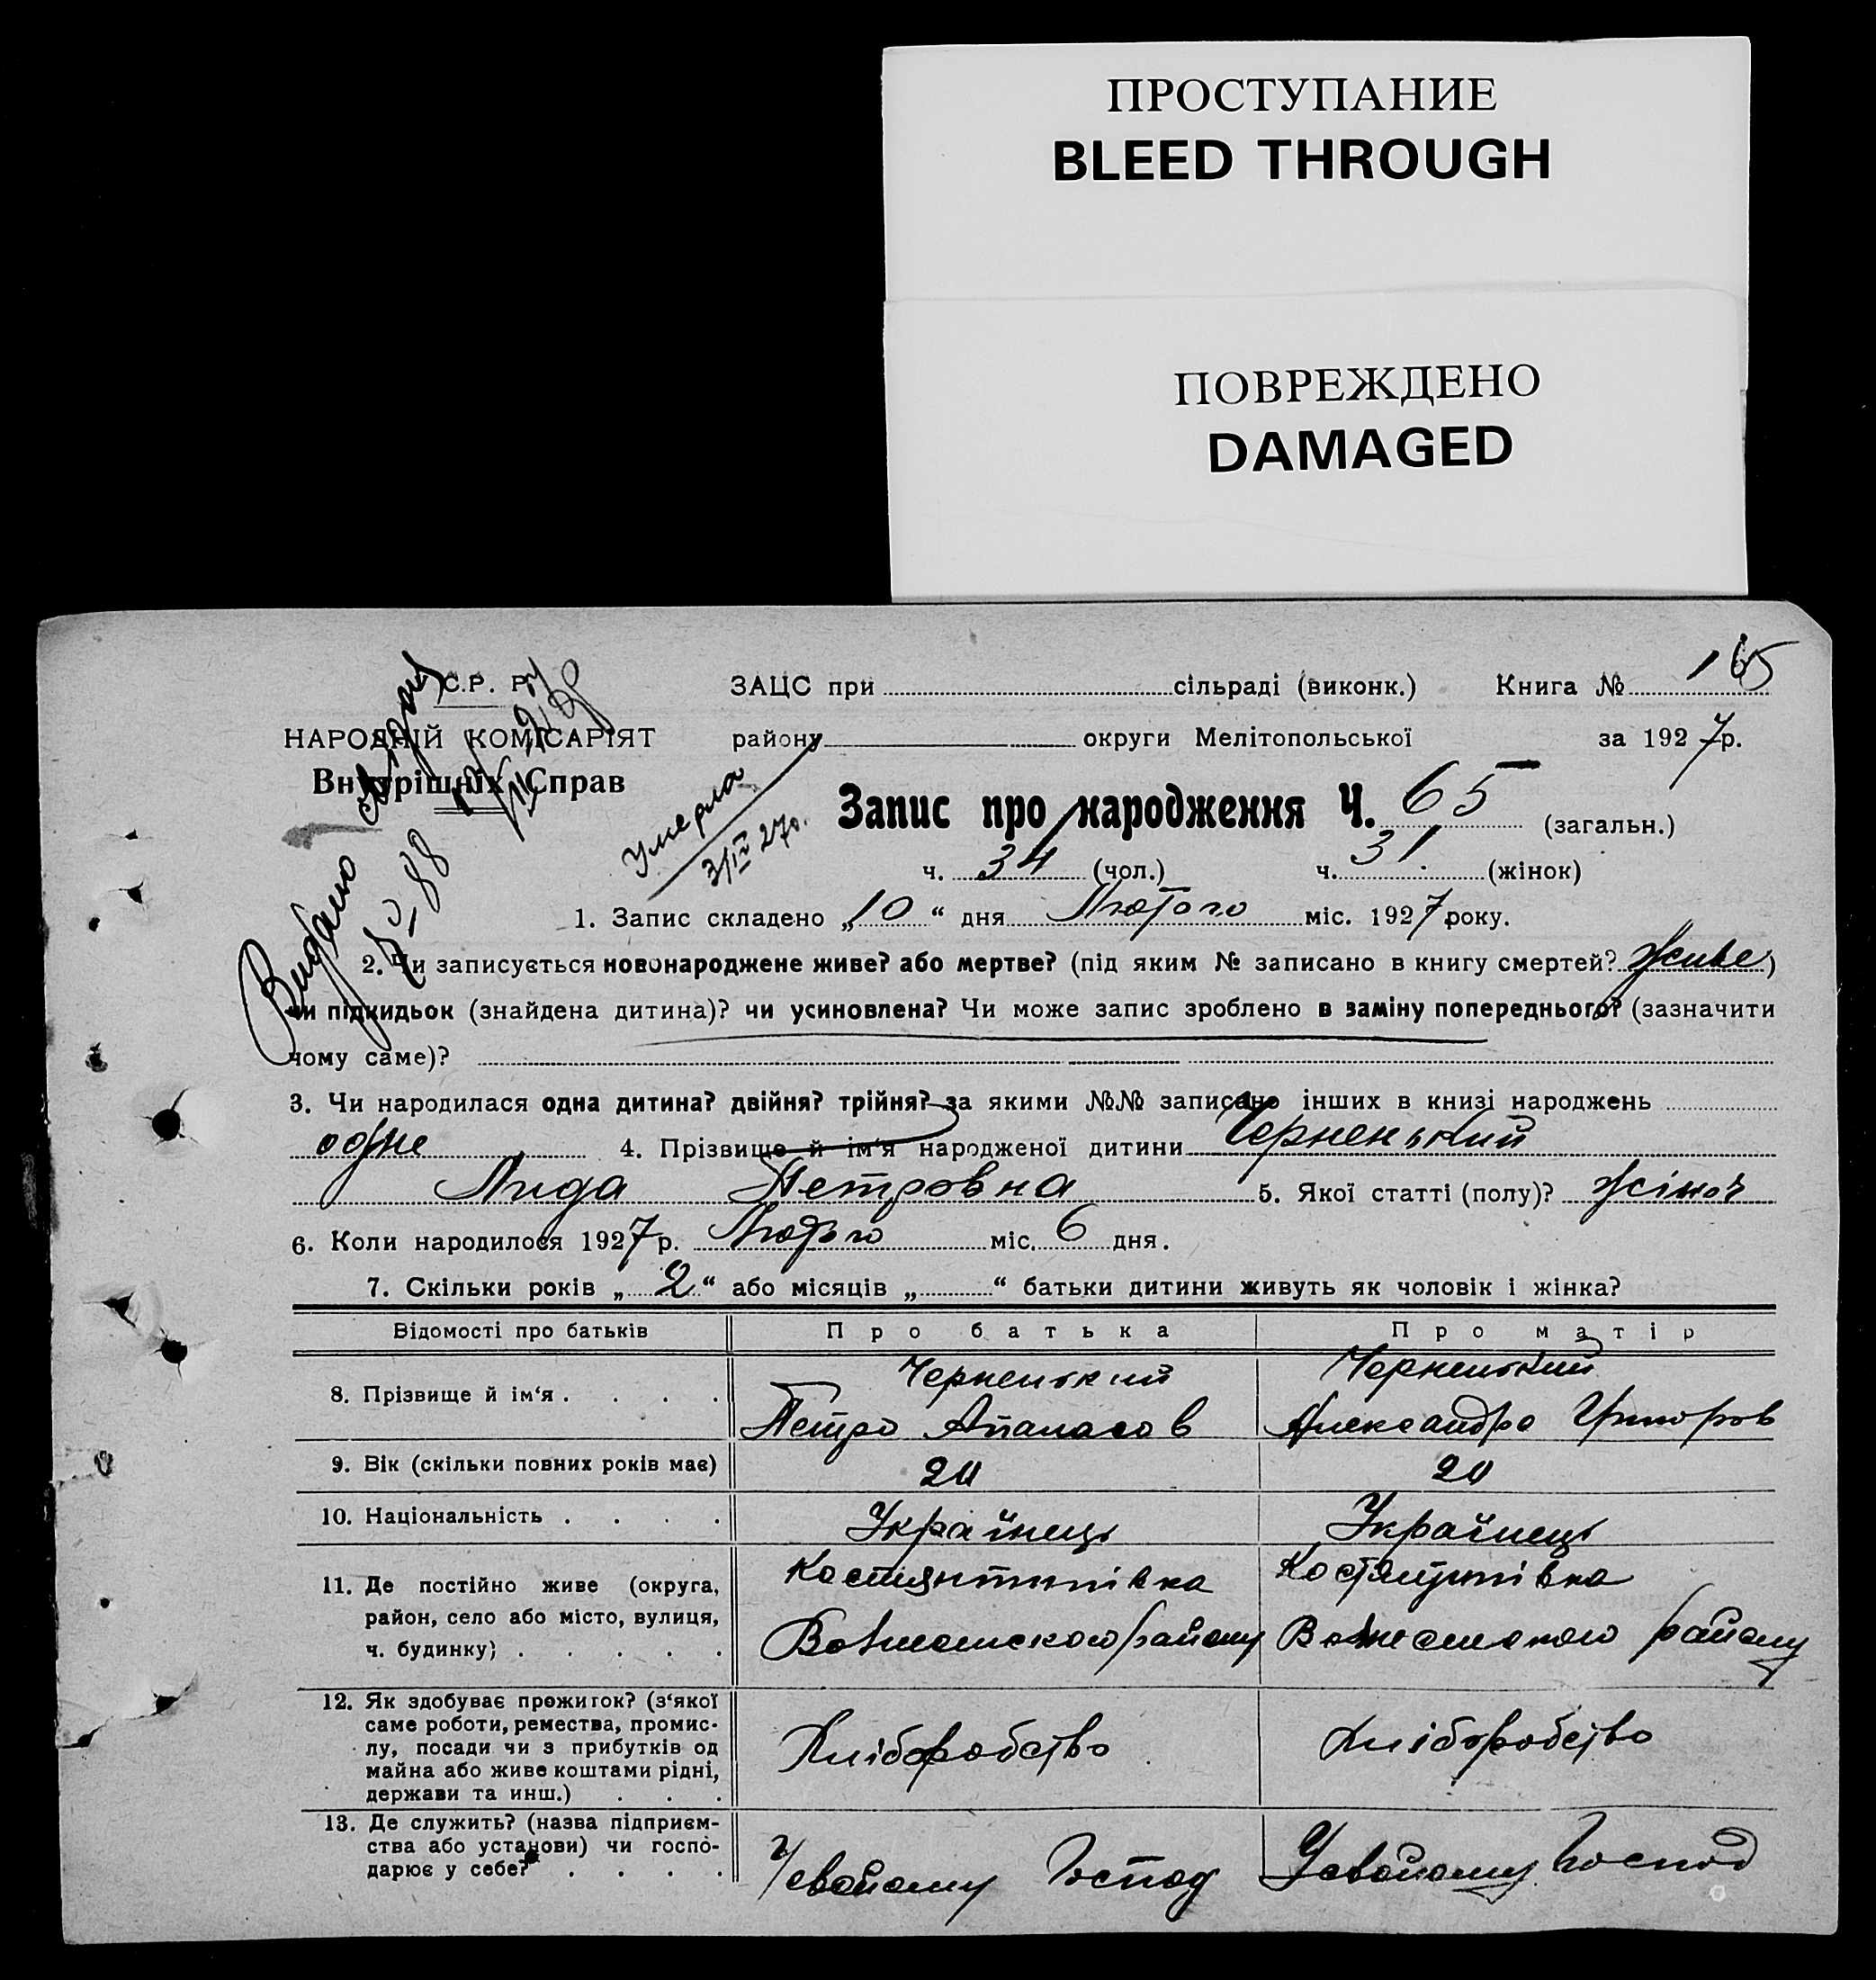 ПРОСТУПАНИЕ
BLEED THROUGH
ПОВРЕЖДЕНО
DAMAGED
С.Р. Р.
НАРОДНІЙ КОМІСАРІЯТ
Внутрішніх Справ
Видано
Умерла
3/IV 27 р.
ЗАЦС при сільраді (виконк.) Книга № 165
району округи Мелітопольської за 1927 р.
Запис про народження Ч. 65 (загальн.)
ч. 34 (чол.) ч. 31 (жінок)
1. Запис складено „10“ дня Лютого міс. 1927 року.
2. Чи записується новонароджене живе? або мертве? (під яким № записано в книгу смертей? живе)
чи підкидьок (знайдена дитина)? чи усиновлена? Чи може запис зроблено в заміну попереднього? (зазначити
чому саме)?
3. Чи народилася одна дитина? двійня? трійня? за якими №№ записано інших в книзі народжень
одне 4. Прізвище й ім‘я народженої дитини Черненький
Лида Петровна 5. Якої статті (полу)? жіноч
6. Коли народилося 1927 р. Лютого міс. 6 дня.
7. Скільки років „2“ або місяців „ “ батьки дитини живуть як чоловік і жінка?
Відомості про батьків Про батька Про матір
8. Прізвище й ім‘я . . . . Черненький Черненький
Петро Апанасов Александра Григоров
9. Вік (скільки повних років має) 20 20
10. Національність . . . . Українець Українець
11. Де постійно живе (округа, Костянтинівка Костянтинівка
район, село або місто, вулиця,
ч. будинку) . . . . . району району
12. Як здобуває прожиток? (з‘якої
саме роботи, ремества, промис-
лу, посади чи з прибутків од Хліборобство Хліборобство
майна або живе коштами рідні,
держави та инш.) . . .
13. Де служить? (назва підприєм-
ства або установи) чи госпо-
дарює у себе? . . . . Усвойому Господ Усвойому Господ